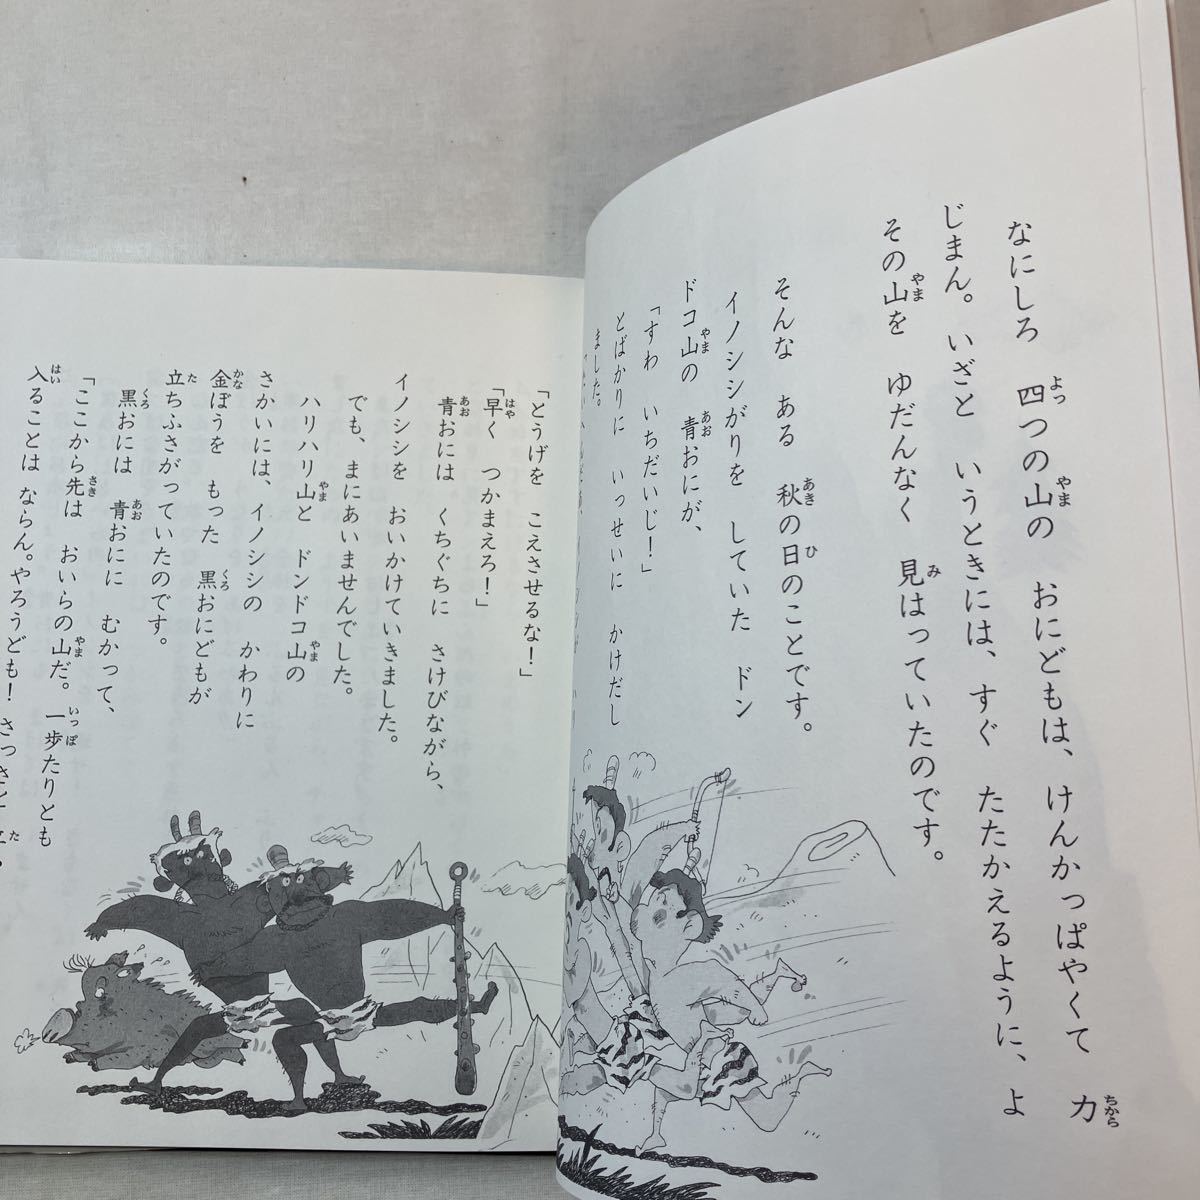 なにしろ　四つの山の　おにどもは、けんかっぱやくて　力
じまん。いざと　いうときには、すぐ　たたかえるように、よ
その山を　ゆだんなく　見はっていたのです。
そんな　ある　秋の日のことです。
イノシシがりを　していた　ドン
ドコ山の　青おにが、
「すわ　いちだいじ！」
とばかりに　いっせいに　かけだし
ました。
「とうげを　こえさせるな！」
「早く　つかまえろ！」
青おには　くちぐちに　さけびながら、
イノシシを　おいかけていきました。
でも、まにあいませんでした。
ハリハリ山と　ドンドコ山の
さかいには、イノシシの　かわりに
金ぼうを　もった　黒おにどもが
立ちふさがっていたのです。
黒おには　青おにに　むかって、
「ここから先は　おいらの山だ。一歩たりとも
入ることは　ならん。やろうども！　さっさと